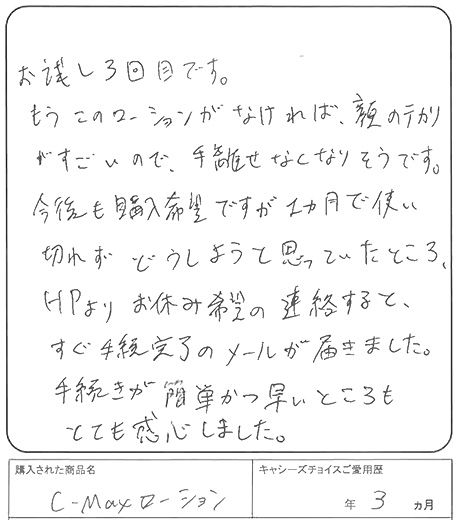 お試し3回目です。
もうこのローションがなければ、顔のテカリ
がすごいので、手離せなくなりそうです。
今後も購入希望ですが1カ月で使い
切れずどうしようと思っていたところ、
HPよりお休み希望の連絡すると、
すぐ手続完了のメールが届きました。
手続きが簡単かつ早いところも
とても感心しました。
購入された商品名
キャシーズチョイスご愛用歴
C-Maxローション
年 3 ヵ月